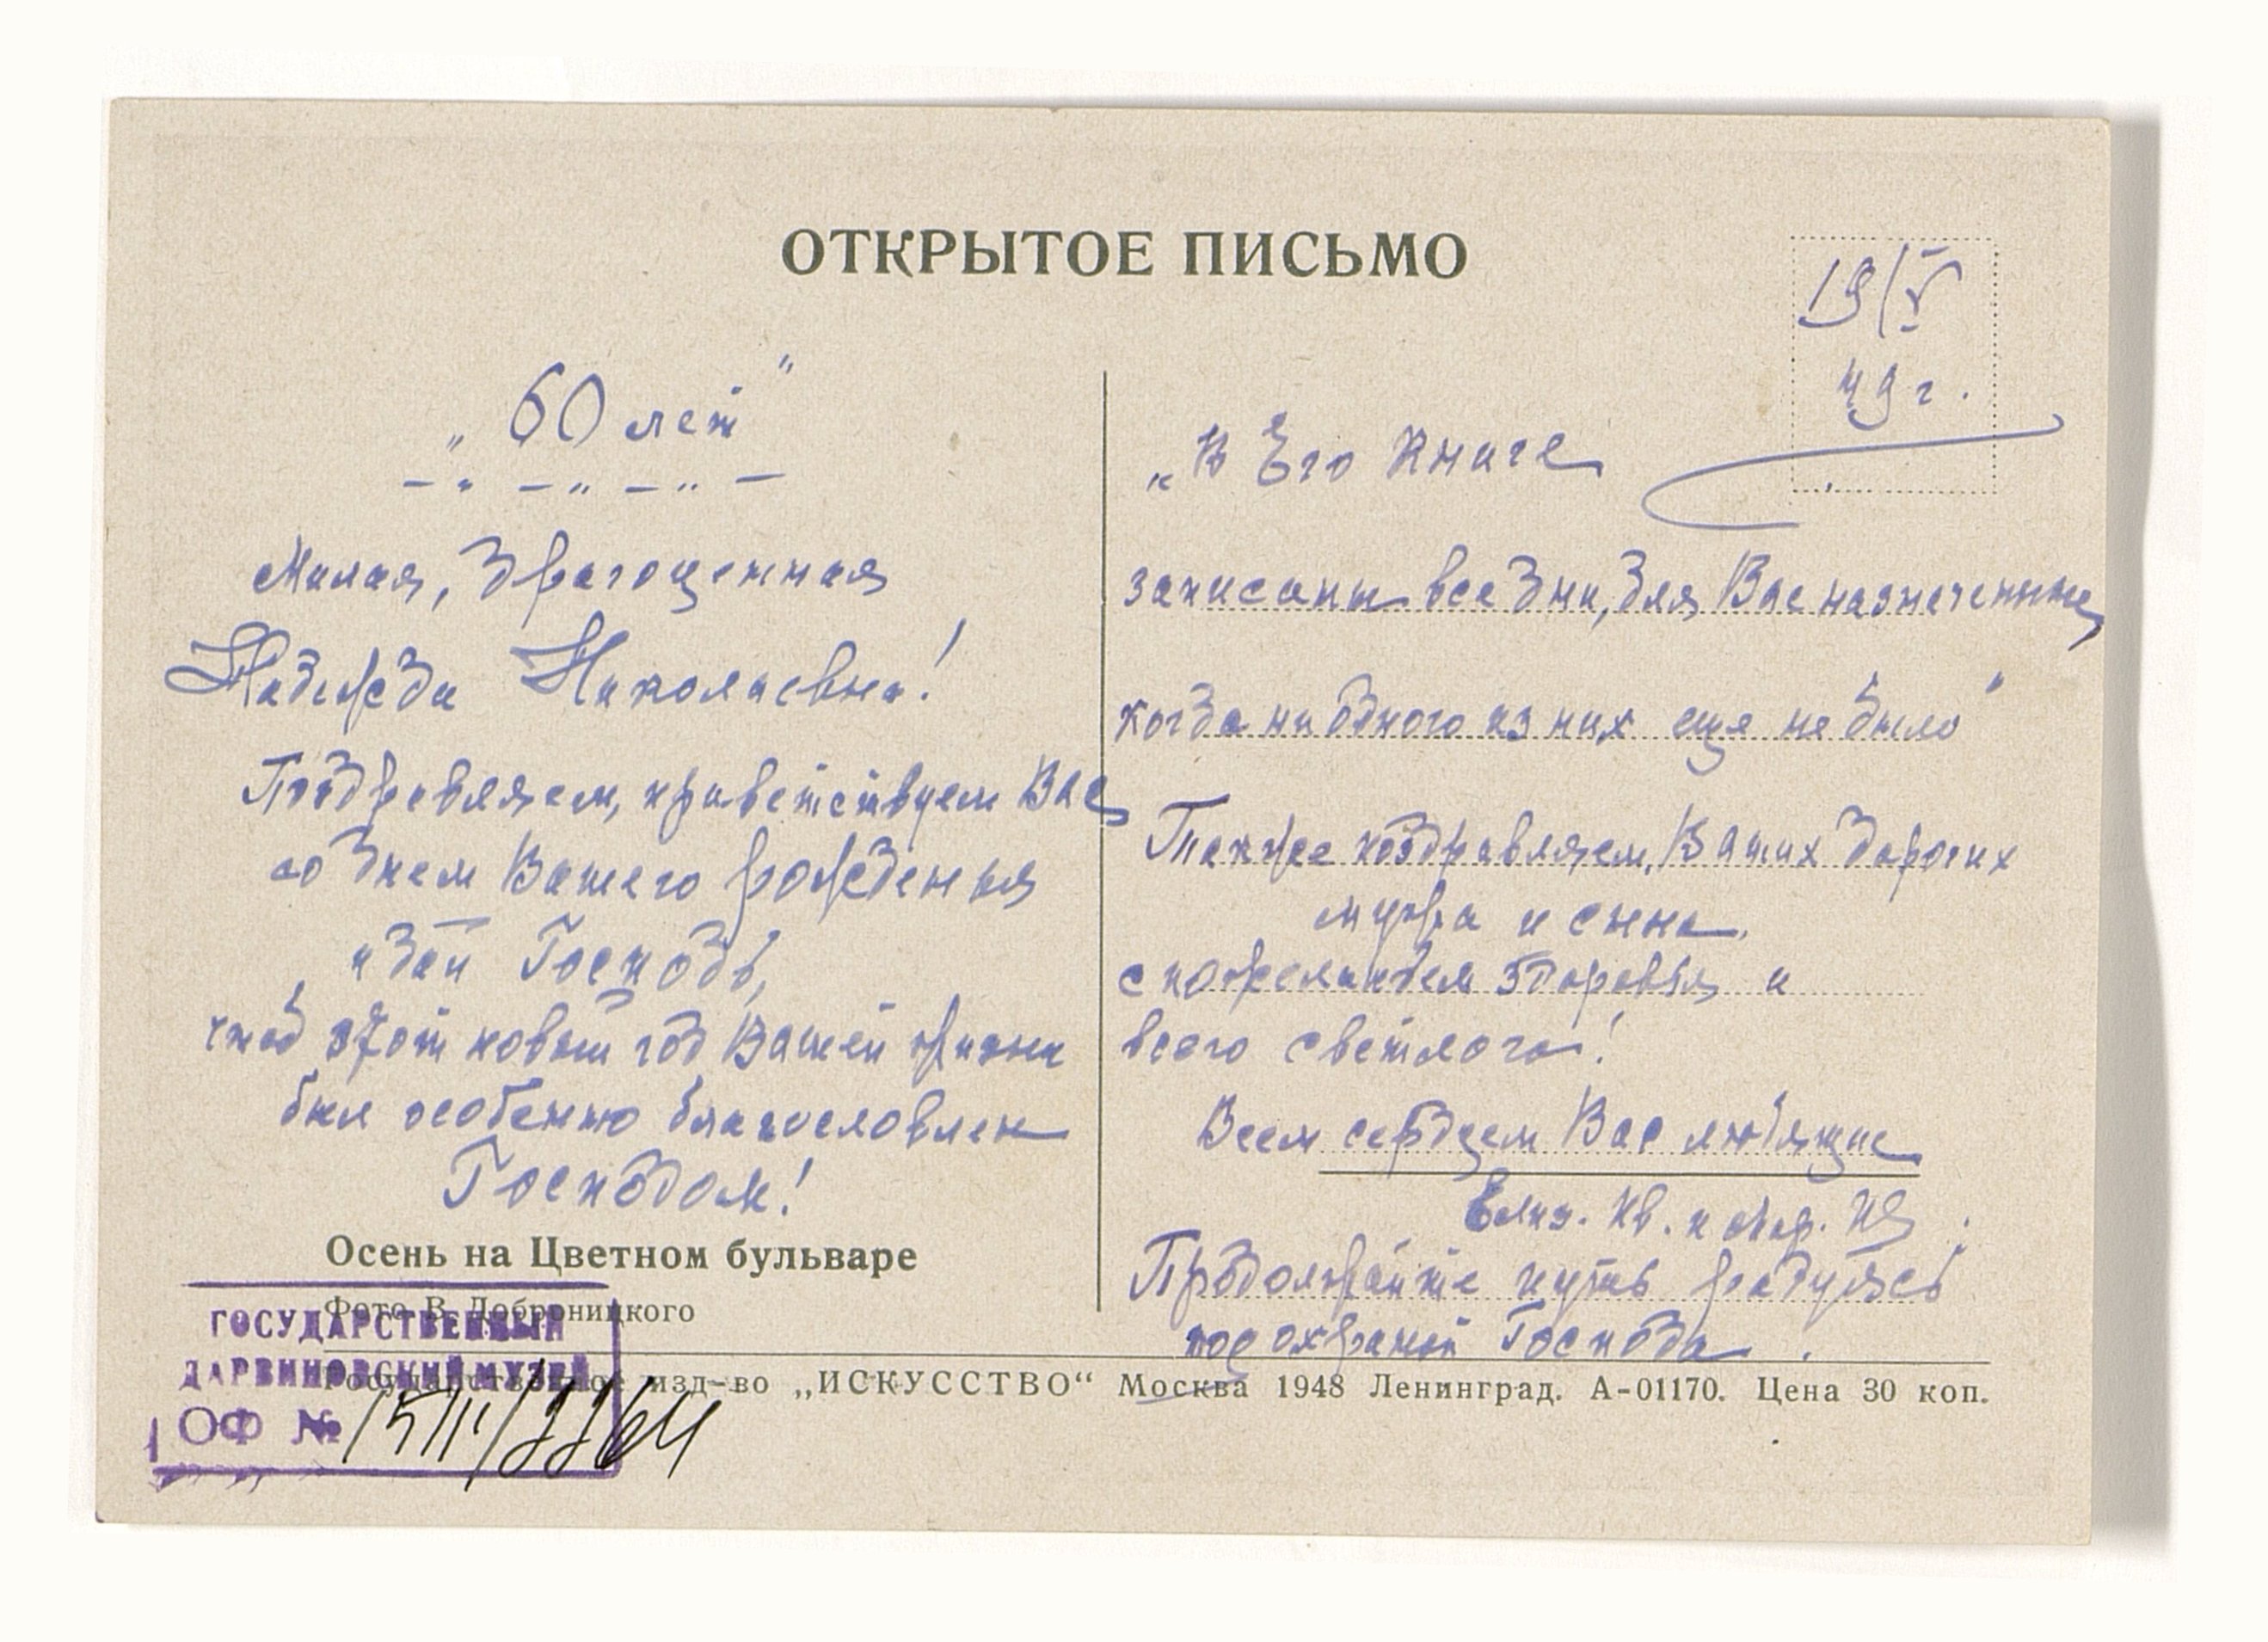 ОТКРЫТОЕ ПИСЬМО
19/V
49 г.
„60 лет"
Милая, драгоценная
Надежда Николаевна!
Поздравляем, приветствуем Вас
со днем Вашего рожденья
и дай Господь,
чтоб этот новый год Вашей жизни
был особенно благословлен
Господом!
Осень на Цветном бульваре
Фото В. Доброницкого
„В Его Книге
записаны все дни, для Вас назначенные,
когда ни одного из них еще не было"
Также поздравляем Ваших дорогих
мужа и сына,
с пожеланьем здоровья и
всего светлого!
Всем сердцем Вас любящие
Елиз. Ив. и Мар. Ив.
Продолжайте путь радуясь
под охраной Господа.
Государственное изд-во „ИСКУССТВО“ Москва 1948 Ленинград. А-01170. Цена 30 коп.
ГОСУДАРСТВЕННЫЙ
ДАРВИНОВСКИЙ МУЗЕЙ
ОФ №